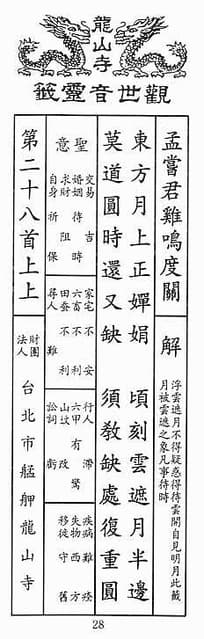 龍山寺
觀世音靈籤
孟嘗君雞鳴度關
解
浮雲遮月不得疑惑得待雲開自見明月此籤
月被雲遮之象凡事待時
東方月上正嬋娟 頃刻雲遮月半邊
莫道圓時還又缺 須敎缺處復重圓
聖意
交易 吉
婚姻 待時
求財 阻
自身 祈保
家宅 不安
六畜 不利
田蚕 不利
尋人 難
行人 滯
六甲 有驚
山坟 改
訟詞 虧
疾病 難痊
失物 西方
移徙 守舊
第二十八首上上
財團
法人
台北市艋舺龍山寺
28